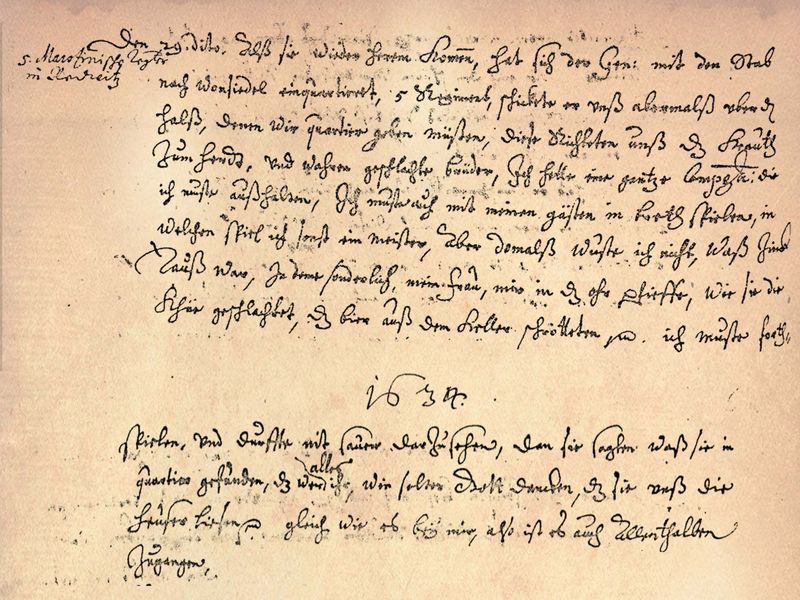 5. Marosinische Regter
in Redwitz
Den 29. dito. Alß sie wieder herein Komen, hat sich der Gen: mit den Stab
nach Wonsiedel einquartieret, 5 Regiment, schickete er unß abermalß uber dz
halß, denen wir quartier geben müsten, diese Richteten unß dz Krauth
Zum herdt, und wahren geschlachte brüder, Ich hette eine gantze Compag: die
ich muste außhalten, Ich muste auch mit meinen gästen in breth spielen, in
welchen spiel ich sonst ein meister, Aber domalß wuste ich nicht, waß Zinck
Tauß war, In deme sonderlich mein frau, mir in dz ohr pfieffe, wie sie die
Khüe geschlachtet, dz bier auß dem Keller schrötteten, ich muste forth-
1634.
spielen, und durffte nit sauer darZusehen, dan sie sagten waß sie in
quartier gefunden, dz wer alles ihr, wir solten Gott dancken, dz sie unß die
heuser liesen gleich wie es bey mir, also ist es auch Allenthalben
Zugangen,